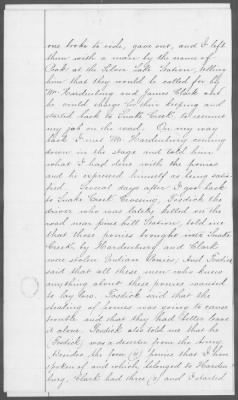 one broke to ride, gave out, and I left
them with a man by the name of
Cook at the Silver Lake Station, telling
him that they would be called for by
Mr. Hardenburg and James Clark and
he could charge for their keeping and
started back to Snake Creek to resume
my job on the road. On my way
back I met Mr. Hardenburg coming
down in the stage and told him
what I had done with the ponies
and he expressed himself as being satis-
fied. Several days after I got back
to Snake Creek Crossing, Fosdick the
driver who was lately killed on the
road near pine hill Station, told me
that those ponies brought into Snake
Creek by Hardenburg and Clark
were stolen Indian Ponies, And Fosdick
said that all these men who knew
anything about these ponies wanted
to lay low. Fosdick said that the
stealing of ponies was going to cause
trouble and that they had better leave
it alone. Fosdick also told me that he
Fosdick, was a deserter from the Army
Besides the four (4) ponies that I have
spoken of and which belonged to Harden-
burg, Clark had three (3) and I started